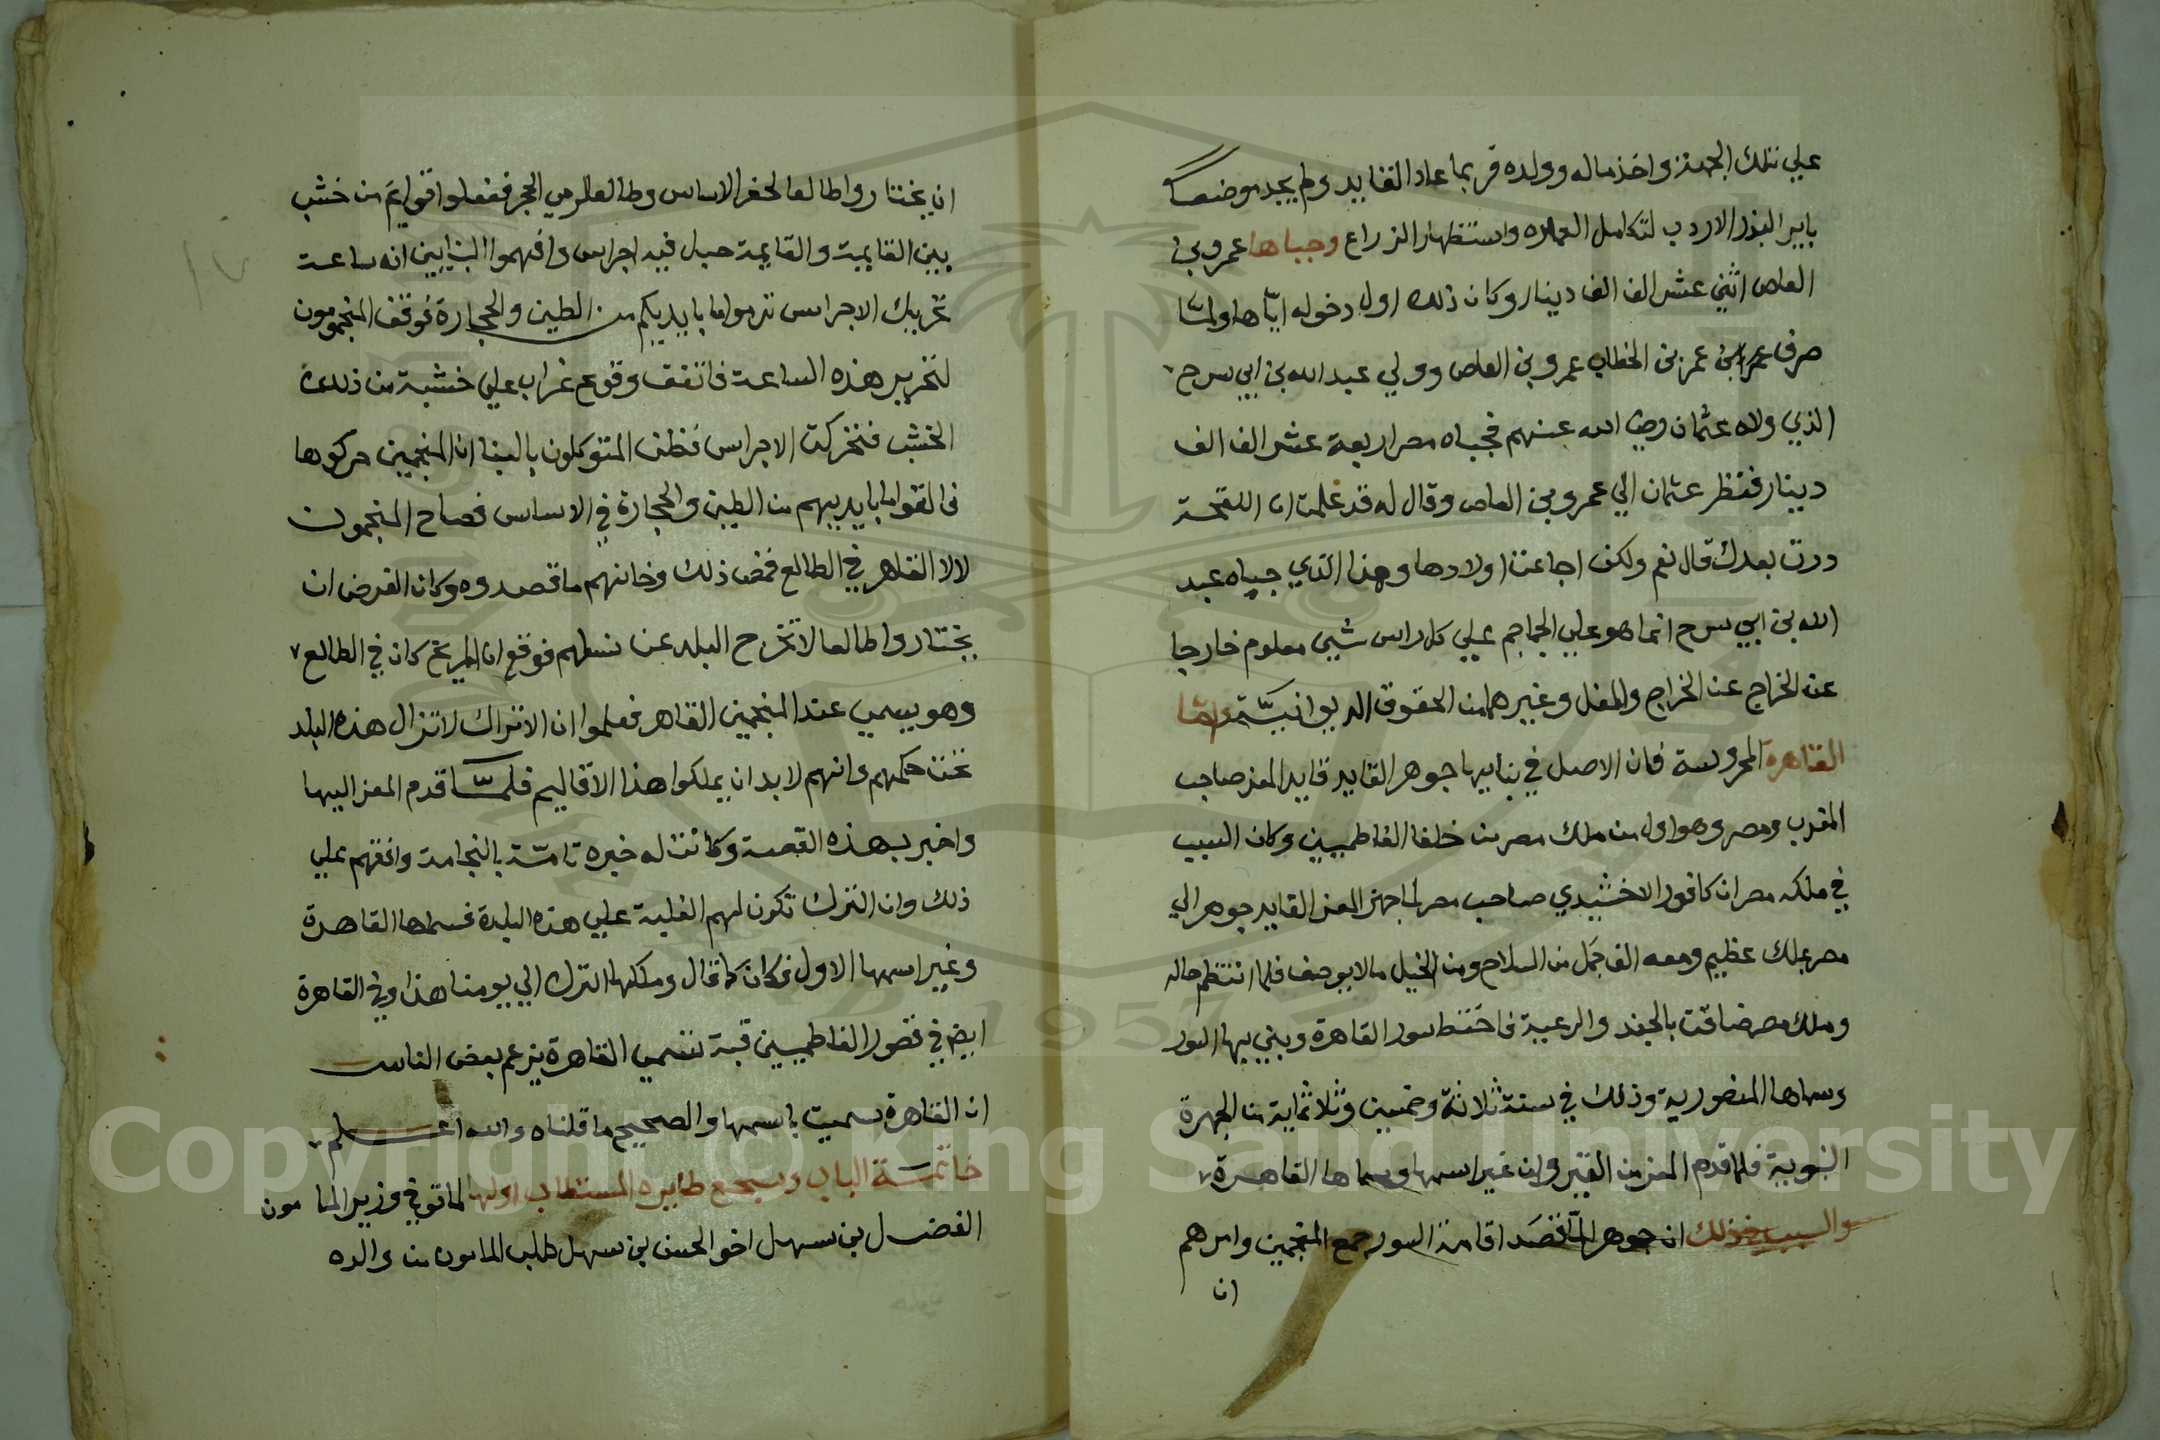 علي تلك الجهة واخذ ماله وولده فربما عاد القايد ولم يجد موضعا
بابر البذر الاردب لتكامل العماره واستظهار الزراع وجباها عمرو بن
العاص اثني عشر الف الف دينار وكان ذلك اول دخوله اياها ولما
صرف عمر بن الخطاب عمرو بن العاص وولي عبد الله بن ابي سرح
الذي ولاه عثمان رضي الله عنهم فجباه مصر اربعة عشر الف الف
دينار فنظر عثمان الي عمرو بن العاص وقال له قد علمت ان اللقحة
درت بعدك قال نعم ولكن اجاعت اولادها وهذا الذي جباه عبد
الله بن ابي سرح انما هو علي الجماجم علي كل راس شي معلوم خارجا
عن الخراج عن الخراج والمغل وغيرهما من الحقوق الديوانية واما
القاهرة المحروسة فان الاصل في بنايها جوهر القايد قايد المعز صاحب
المغرب ومصر وهو اول من ملك مصر من خلفا الفاطميين وكان السبب
في ملكه مصر ان كافور الاخشيدي صاحب مصر لما جهز المعز القايد جوهر الي
مصر بملك عظيم ومعه الف جمل من السلاح ومن الخيل مالا يوصف فلما انتظم حاله
وملك مصر ضاقت بالجند والرعية فاختط سور القاهرة وبني بها السور
وسماها المنصورية وذلك في سنة ثلاثة وخمسين وثلاثماية من الهجرة
النبوية فلما قدم المعز من القيروان غير اسمها وسماها القاهرة
والسبب في ذلك ان جوهر لما قصد اقامة السور جمع المنجمين وامرهم
ان
ان يختاروا طالعا لحفر الاساس وطالعا لرمي الحجر ففعلوا قوايم من خشب
بين القايمة والقايمة حبل فيه اجراس وافهموا البنايين انه ساعة
تحريك الاجراس ترموا ما بايديكم من الطين والحجارة فوقف المنجمون
لتحرير هذه الساعة فاتفق وقوع غراب علي خشبة من ذلك
الخشب فتحركت الاجراس فظن المتوكلون بالبنا ان المنجمين حركوها
فالقوا ما بايديهم من الطين والحجارة في الاساس فصاح المنجمون
لا لا القاهر في الطالع فمض ذلك وخانهم ما قصدوه وكان الغرض ان
يختاروا طالعا لا تخرج البلد عن نسلهم فوقع ان المريخ كان في الطالع
وهو يسمي عند المنجمين القاهر فعلموا ان الاتراك لا تزال هذه البلد
تحت حكمهم وانهم لابد ان يملكوا هذا الاقاليم فلما قدم المعز اليها
واخبر بهذه القصة وكانت له خبره تامة بالنجامة وافقهم علي
ذلك وان الترك تكون لهم الغلبة علي هذه البلدة فسماها القاهرة
وغير اسمها الاول فكان كما قال وملكها الترك الي يومنا هذا وفي القاهرة
ايض في قصور الفاطميين قبة تسمي القاهرة يزعم بعض الناس
ان القاهرة سميت باسمها والصحيح ما قلناه والله اعلم
خاتمة الباب وسجع طايره المستطاب اولها لما توفي وزير المامون
الفضل بن سهل اخو الحسن بن سهل طلب المامون من والده
Copyright © King Saud University
1957